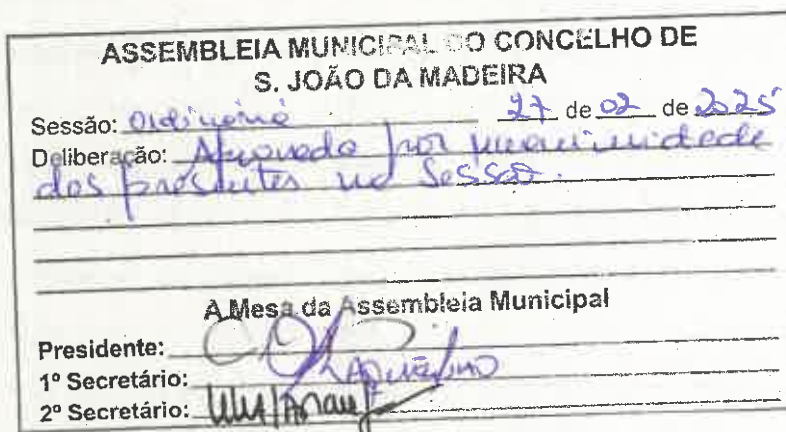 ASSEMBLEIA MUNICIPAL DO CONCELHO DE
S. JOÃO DA MADEIRA
Sessão: Ordinária 27 de 02 de 2025
Deliberação: Aprovado por unanimidade
dos presentes na Sessão.
A Mesa da Assembleia Municipal
Presidente:
1º Secretário:
2º Secretário: